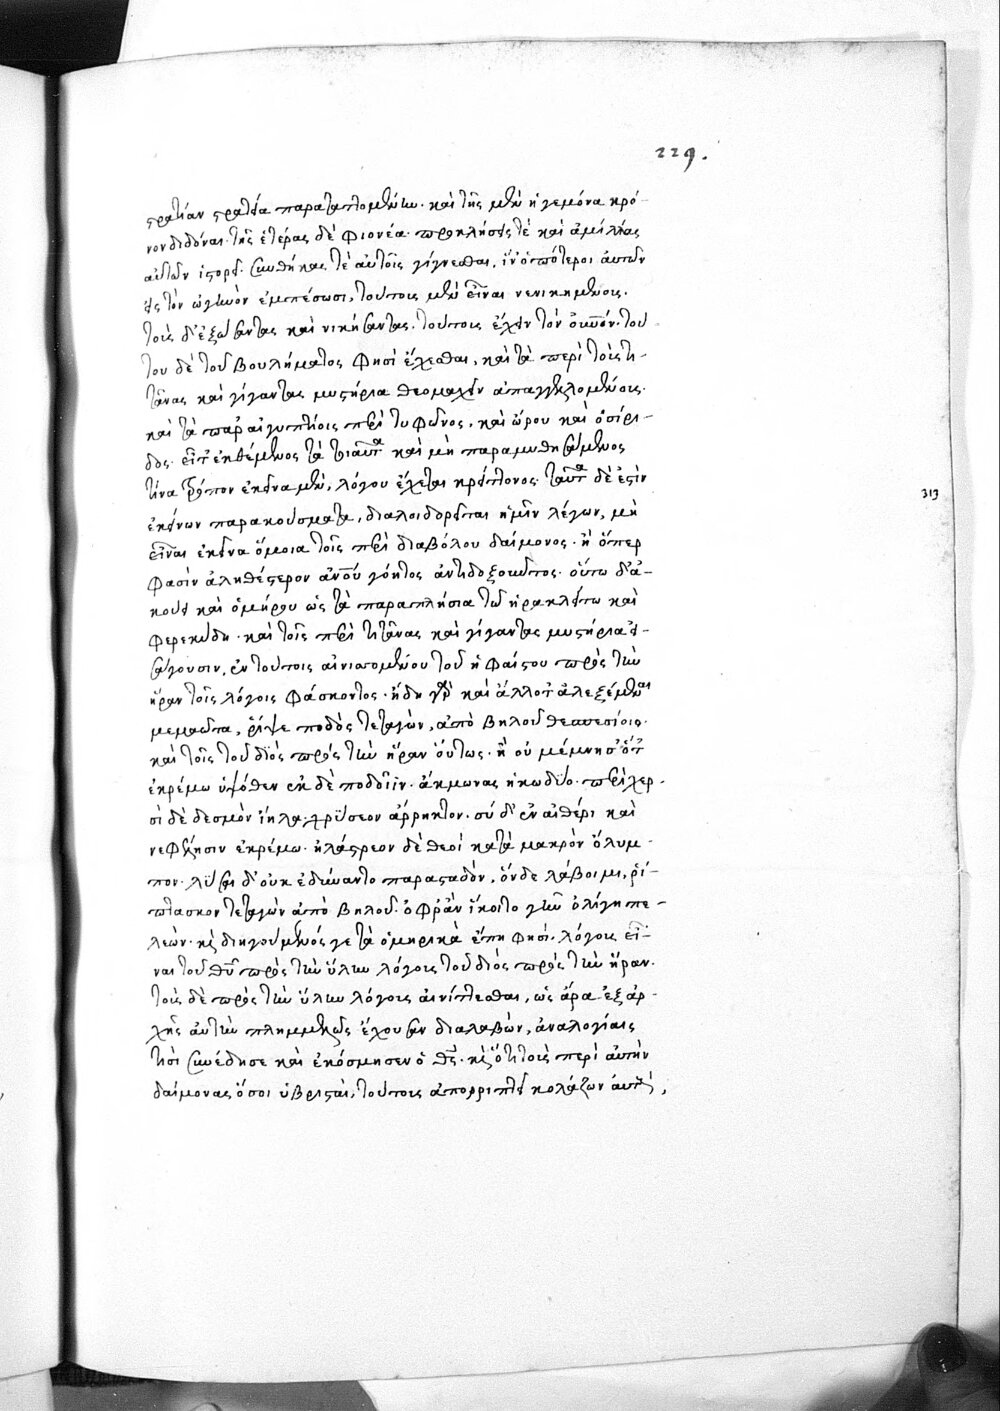 229.
στρατείαν στρατεία παραταττομένην. καὶ τῆς μὲν ἡγεμόνα κρό-
νον διδόναι. τῆς ἑτέρας δὲ ὀφιονέα. προκλήσεις τὲ καὶ ἁμίλλας
αὐτῶν ἱστορεῖ. συνθήκας τὲ αὐτοῖς γίγνεσθαι, ἵν' ὁπότεροι αὐτῶν
εἰς τὸν ὠγηνὸν ἐμπέσωσι, τούτους μὲν εἶναι νενικημένους.
τοὺς δ' ἐξώσαντας καὶ νικήσαντας. τούτους ἔχειν τὸν οὐνόν. τού
του δὲ τοῦ βουλήματος φησὶ ἔχεσθαι, καὶ τὰ περὶ τοὺς τι-
τᾶνας καὶ γίγαντας μυστήρια θεομαχεῖν ἀπαγγελλομένους.
καὶ τὰ παρ' αἰγυπτίοις περὶ τυφῶνος, καὶ ὥρου καὶ ὀσίρι-
δος. εἶτ' ἐκθέμενος τὰ τοιαῦτα καὶ μὴ παραμυθησάμενος
τίνα τρόπον ἐκεῖνα μὲν, λόγου ἔχεται κρείττονος. ταῦτα δέ ἐστιν
ἐκείνων παρακούσματα, διαλοιδορεῖται ἡμῖν λέγων, μὴ
εἶναι ἐκεῖνα ὅμοια τοῖς περὶ διαβόλου δαίμονος. ἢ ὅπερ
φασὶν ἀληθέστερον ἀνου γόητος ἀντιδοξοῦντος. οὕτω δ' ἀ-
κούει καὶ ὁμήρου ὡς τὰ παραπλήσια τῶ ἡρακλείτω καὶ
φερεκύδη. καὶ τοῖς περὶ τιτᾶνας καὶ γίγαντας μυστήρια εἰ-
σάγουσιν, ἐν τούτοις αἰνισσομένου τοῦ ἡφαίστου πρὸς τὴν
ἥραν τοῖς λόγοις φάσκοντος. ἤδη γὰρ καὶ ἄλλοτ' ἀλεξέμεναι
μεμαῶτα, ῥίψε ποδὸς τεταγὼν, ἀπὸ βηλοῦ θεσπεσίοιο.
καὶ τοῖς τοῦ διὸς πρὸς τὴν ἥραν οὕτως. ἢ οὐ μέμνησ' ὅτ'
ἐκρέμω ὑψόθεν ἐκ δὲ ποδοῖϊν. ἄκμονας ἧκα δύο. περὶ χερ-
σὶ δὲ δεσμὸν ἴηλα. χρύσεον ἄρρηκτον. σὺ δ' ἐν αἰθέρι καὶ
νεφέλησιν ἐκρέμω. ἠλάστρεον δὲ θεοὶ κατὰ μακρὸν ὄλυμ-
πον. λῦσαι δ' οὐκ ἐδύναντο παρασταδὸν, ὅνδε λάβοιμι, ῥί-
πτασκον τεταγὼν ἀπὸ βηλοῦ. ὄφρ' ἂν ἵκοιτο γῆν ὀλιγηπε-
λεών. καὶ διηγούμενός γε τὰ ὁμηρικὰ ἔπη φησὶ. λόγους εἶ-
ναι τοῦ θυ πρὸς τὴν ὕλην λόγους τοῦ διὸς πρὸς τὴν ἥραν.
τοὺς δὲ πρὸς τὴν ὕλην λόγους αἰνίττεσθαι, ὡς ἄρα ἐξ ἀρ-
χῆς αὐτὴν πλημμελῶς ἔχουσαν διαλαβὼν, ἀναλογίαις
τισὶ συνέδησε καὶ ἐκόσμησεν ὁ θς. καὶ ὅτι τοὺς περὶ αὐτὴν
δαίμονας ὅσοι ὑβρισταὶ, τούτους ἀπορριπτεῖ κολάζων αὐτοὺς,
313